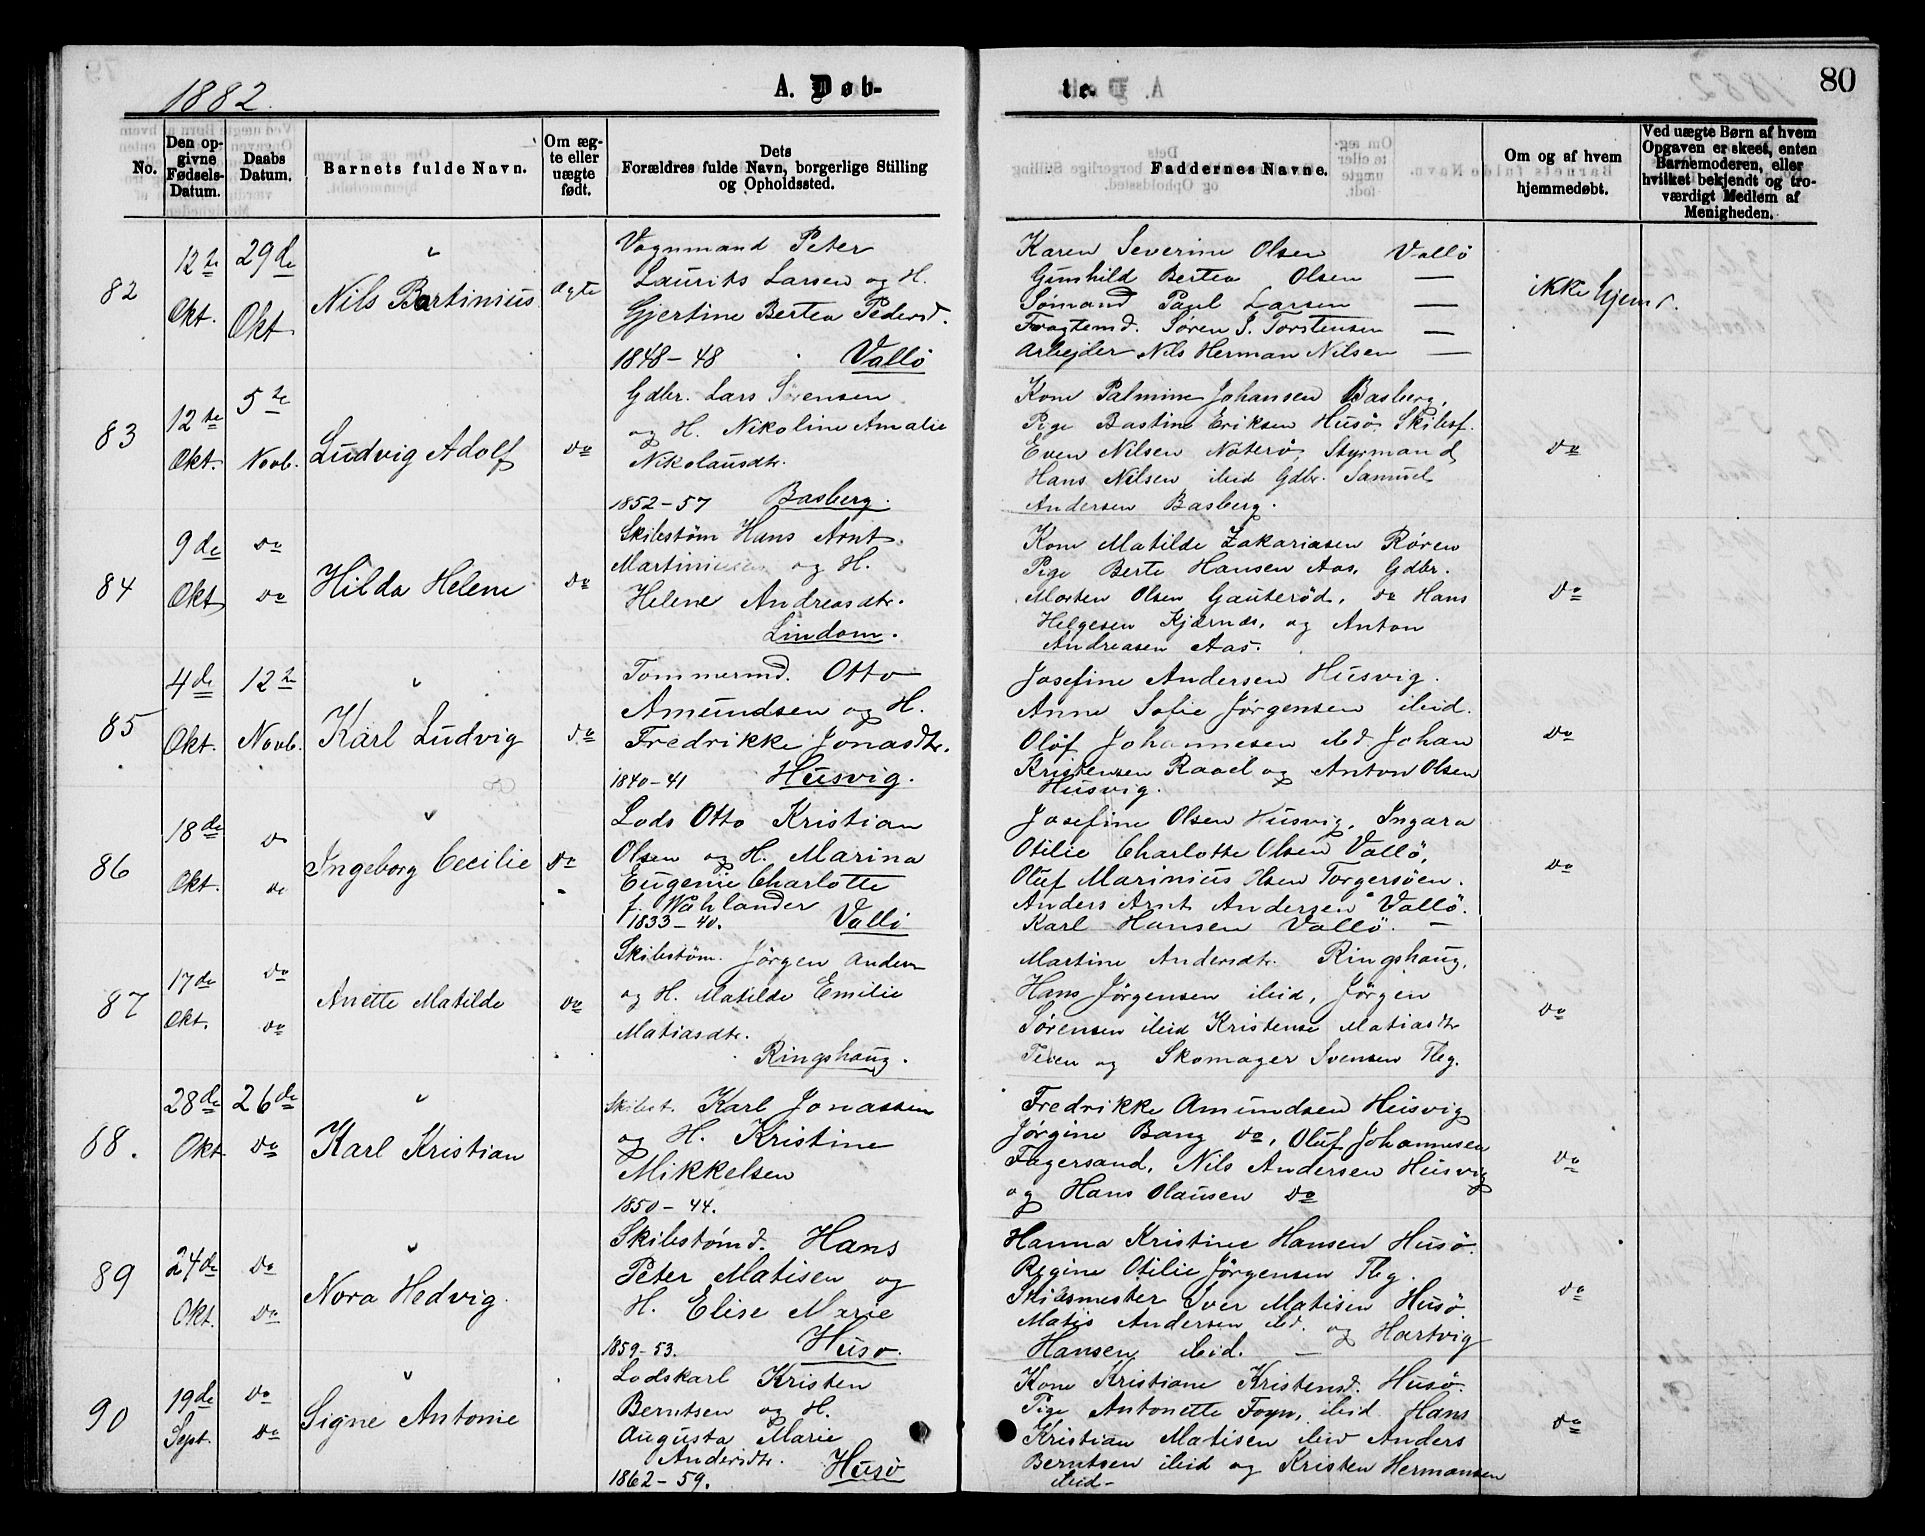 1882.
A. Døb-
te.
80
No.
Den opgivne Fødsels-Datum.
Daabs Datum.
Barnets fulde Navn.
Om ægte eller uægte født.
Dets Forældres fulde Navn, borgerlige Stilling og Opholdssted.
Faddernes Navne.
Om og af hvem hjemmedøbt.
Ved uægte Børn af hvem Opgaven er skeet, enten Barnemoderen, eller hvilket bekjendt og troværdigt Medlem af Menigheden.
82
12te Okt.
29de Okt
Nils Bertinius
ægte
Vognmand Peter
Laurits Larsen og H.
Gjertine Bertea Pedersd.
1848-48 Vallö
Karen Severine Olsen Vallö
Gunhild Bertea Olsen —
Sømand Paul Larsen —
Fragtemd. Søren S. Torstensen —
Arbejder Nils Herman Nilsen —
ikke hjemd.
83
12te Okt.
5te Novb.
Ludvig Adolf
do
Gdbr. Lars Sørensen
og H. Nikoline Amalie
Nikolausdtr.
1852-57 Basberg.
Kone Palmine Johansen Basberg,
Pige Bastine Eriksen Husö, Skibsf.
Even Nilsen Nøterø, Styrmand
Hans Nilsen ibid Gdbr. Samuel
Andersen Basberg.
do
84
9de Okt
do do
Hilda Helene
do
Skibstøm Hans Arnt
Martiniusen og H.
Helene Andreasdtr.
Lindom.
Kone Matilde Zakariasen Røren
Pige Berte Hansen Aas, Gdbr.
Morten Olsen Gauterød, do Hans
Helgesen Kjærnæs, og Anton
Andreasen Aas.
do
85
4de Okt.
12te Novb.
Karl Ludvig
do
Tommermd. Otto
Amundsen og H.
Fredrikke Jonasdtr.
1840-41 Husvig.
Josefine Andersen Husvig.
Anne Sofie Jørgensen ibid.
Olof Johannesen ibd. Johan
Kristensen Raael og Anton Olsen
Husvig.
do
86
18de Okt.
do do
Ingeborg Cecilie
do
Lods Otto Kristian
Olsen og H. Marina
Eugenie Charlotte
f. Wahlander
1833-40. Vallö
Josefine Olsen Husvig, Ingara
Otilie Charlotte Olsen Vallö,
Oluf Marinius Olsen Torgersöen.
Anders Arnt Andersen Vallö.
Karl Hansen Vallö. —
do
87
17de Okt.
do do
Anette Matilde
do
Skibstøm. Jörgen Andersn
og H. Matilde Emilie
Matiasdtr.
Ringshaug.
Martine Andersdtr. Ringshaug,
Hans Jørgensen ibid, Jørgen
Sørensen ibid Kristense Matiasdtr
Teien og Skomager Svensen Tbg.
do
88.
28de Okt
26de do
Karl Kristian
Skibst. Karl Jonassen
og H. Kristine
Mikkelsen
1850-44.
Fredrikke Amundsen Husvig
Jørgine Bang do, Oluf Johannesen
Fagersand, Nils Andersen Husvig
og Hans Olausen do
do
89
24de Okt.
do do
Nora Hedvig.
Skibstømd. Hans
Peter Matisen og
H. Elise Marie
1859-53. Husø.
Hanna Kristine Hansen Husö.
Regine Otilie Jørgensen Tbg.
Skibsmester Iver Matisen Husö
Matis Andersen ibd. og Hartvig
Hansen ibid. —
do
90
19de Sept.
do do
Signe Antonie
Lodskarl Kristen
Berntsen og H.
Augusta Marie
Andersdtr.
1862-59. Husö
Kone Kristiane Kristensd. Husö.
Pige Antonette Foyn, ibid Hans
Kristian Matisen ibid Anders
Berntsen ibid og Kristen Hermansen
ibid-
do